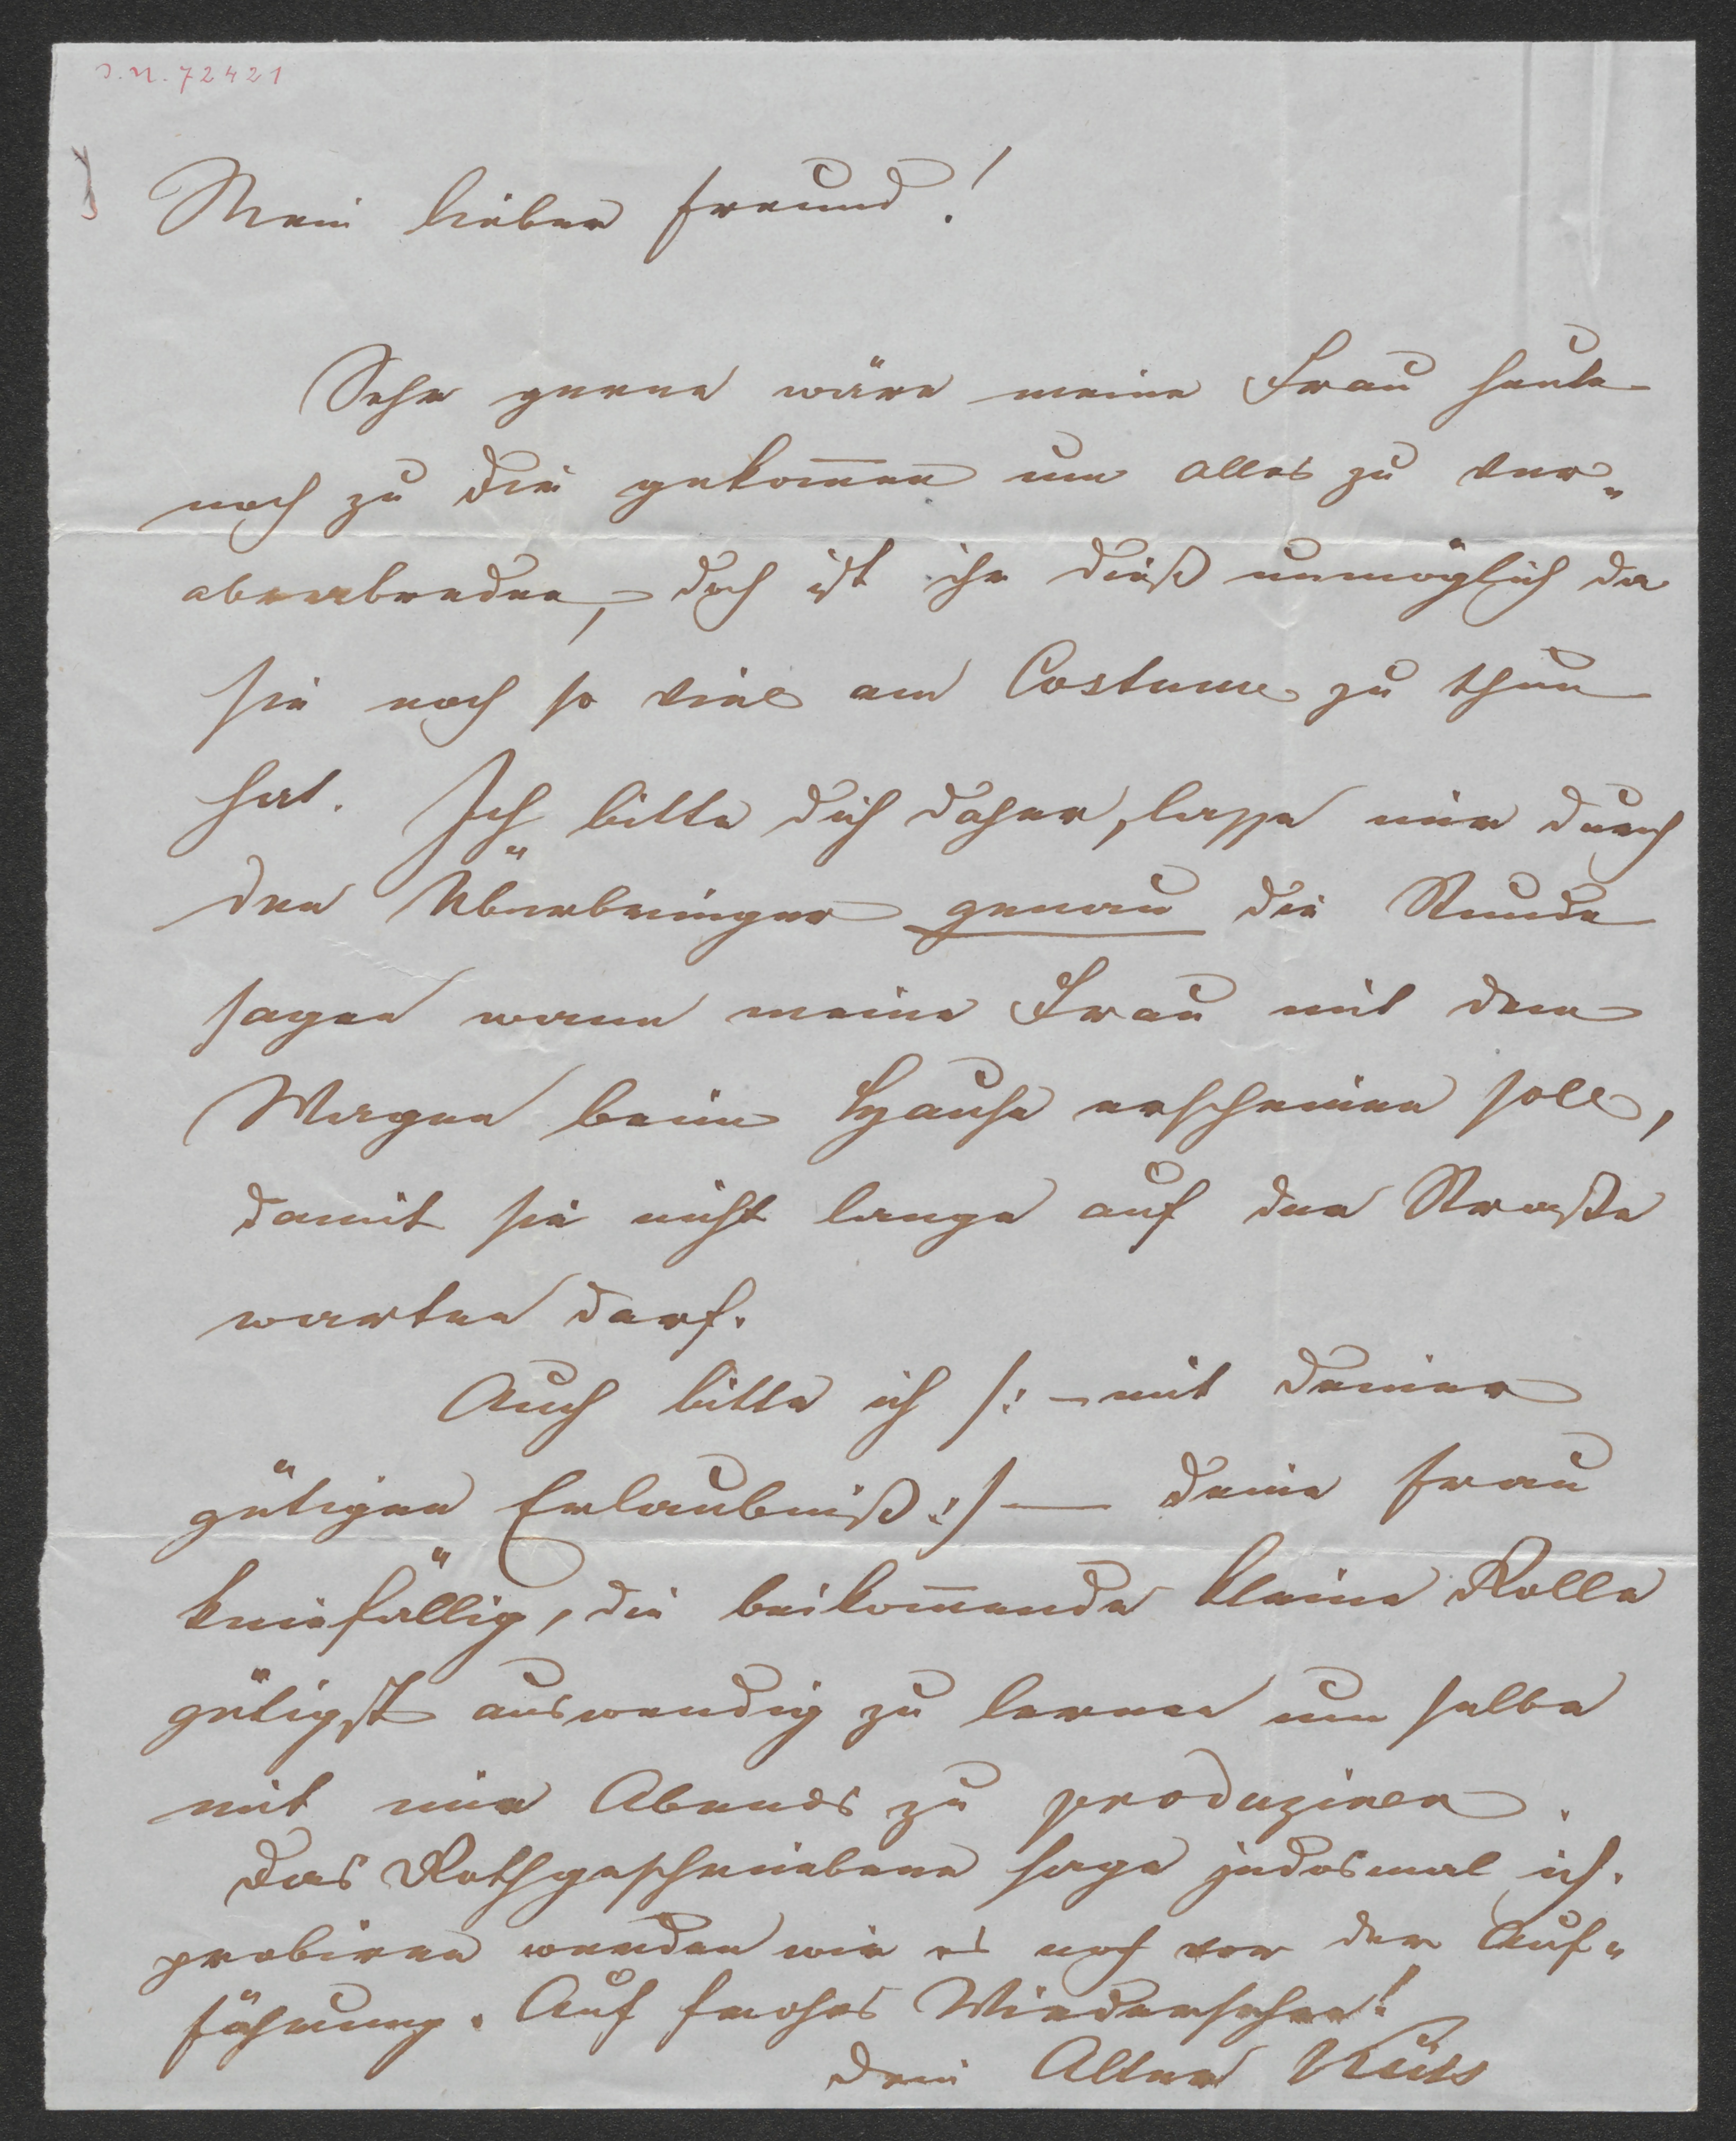 J.N. 72421
Mein lieber Freund!
Sehr gerne wäre meine Frau heute
noch zu dir gekom̄en um alles zu ver„
abreden, doch ist ihr dieß unmöglich da
sie noch so viel am Costume zu thun
hat. Ich bitte dich daher, lasse mir durch
den Überbringer genau die Stunde
sagen wann meine Frau mit dem
Wagen beim Hause erscheinen soll,
damit sie nicht lange auf der Straße
warten darf.
Auch bitte ich /: – mit deiner
gütigen Erlaubniß :/ — deine Frau
kniefällig, die beikom̄ende kleine Rolle
gütigst auswendig zu lernen um selbe
mit mir Abends zu produziren.
Das Rothgeschriebene sage jedesmal ich.
probiren werden wir es noch vor der Auf„
führung. Auf frohes Wiedersehen!
Dein Alter